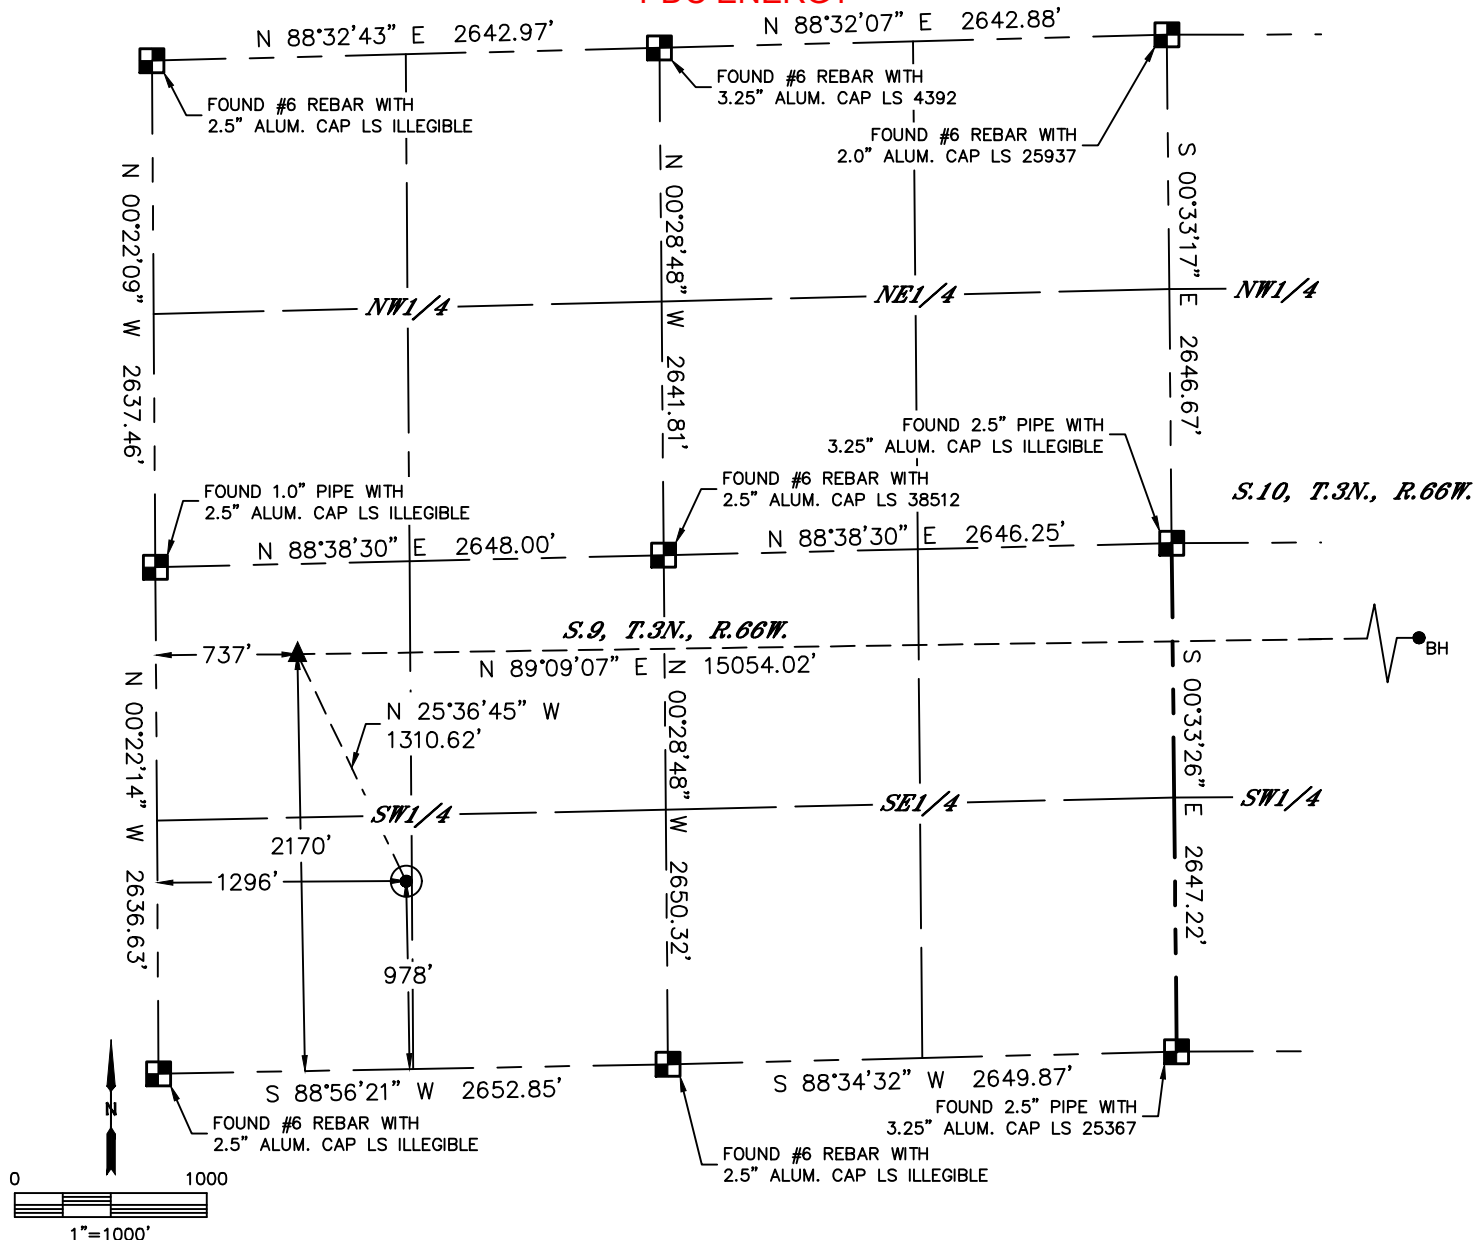 PDC ENERGY
N 88°32'43" E 2642.97'
N 88°32'07" E 2642.88'
FOUND #6 REBAR WITH
2.5" ALUM. CAP LS ILLEGIBLE
FOUND #6 REBAR WITH
3.25" ALUM. CAP LS 4392
FOUND #6 REBAR WITH
2.0" ALUM. CAP LS 25937
N 00°22'09" W 2637.46'
N 00°28'48" W 2641.81'
S 00°33'17" E 2646.67'
NW1/4
NE1/4
NW1/4
FOUND 2.5" PIPE WITH
3.25" ALUM. CAP LS ILLEGIBLE
FOUND 1.0" PIPE WITH
2.5" ALUM. CAP LS ILLEGIBLE
FOUND #6 REBAR WITH
2.5" ALUM. CAP LS 38512
S.10, T.3N., R.66W.
N 88°38'30" E 2648.00'
N 88°38'30" E 2646.25'
S.9, T.3N., R.66W.
737'
N 89°09'07" E 15054.02'
BH
N 25°36'45" W
1310.62'
N 00°22'14" W 2636.63'
N 00°28'48" W 2650.32'
S 00°33'26" E 2647.22'
SW1/4
SE1/4
SW1/4
2170'
1296'
978'
S 88°56'21" W 2652.85'
S 88°34'32" W 2649.87'
N
FOUND #6 REBAR WITH
2.5" ALUM. CAP LS ILLEGIBLE
FOUND 2.5" PIPE WITH
3.25" ALUM. CAP LS 25367
FOUND #6 REBAR WITH
2.5" ALUM. CAP LS ILLEGIBLE
0 1000
1"=1000'